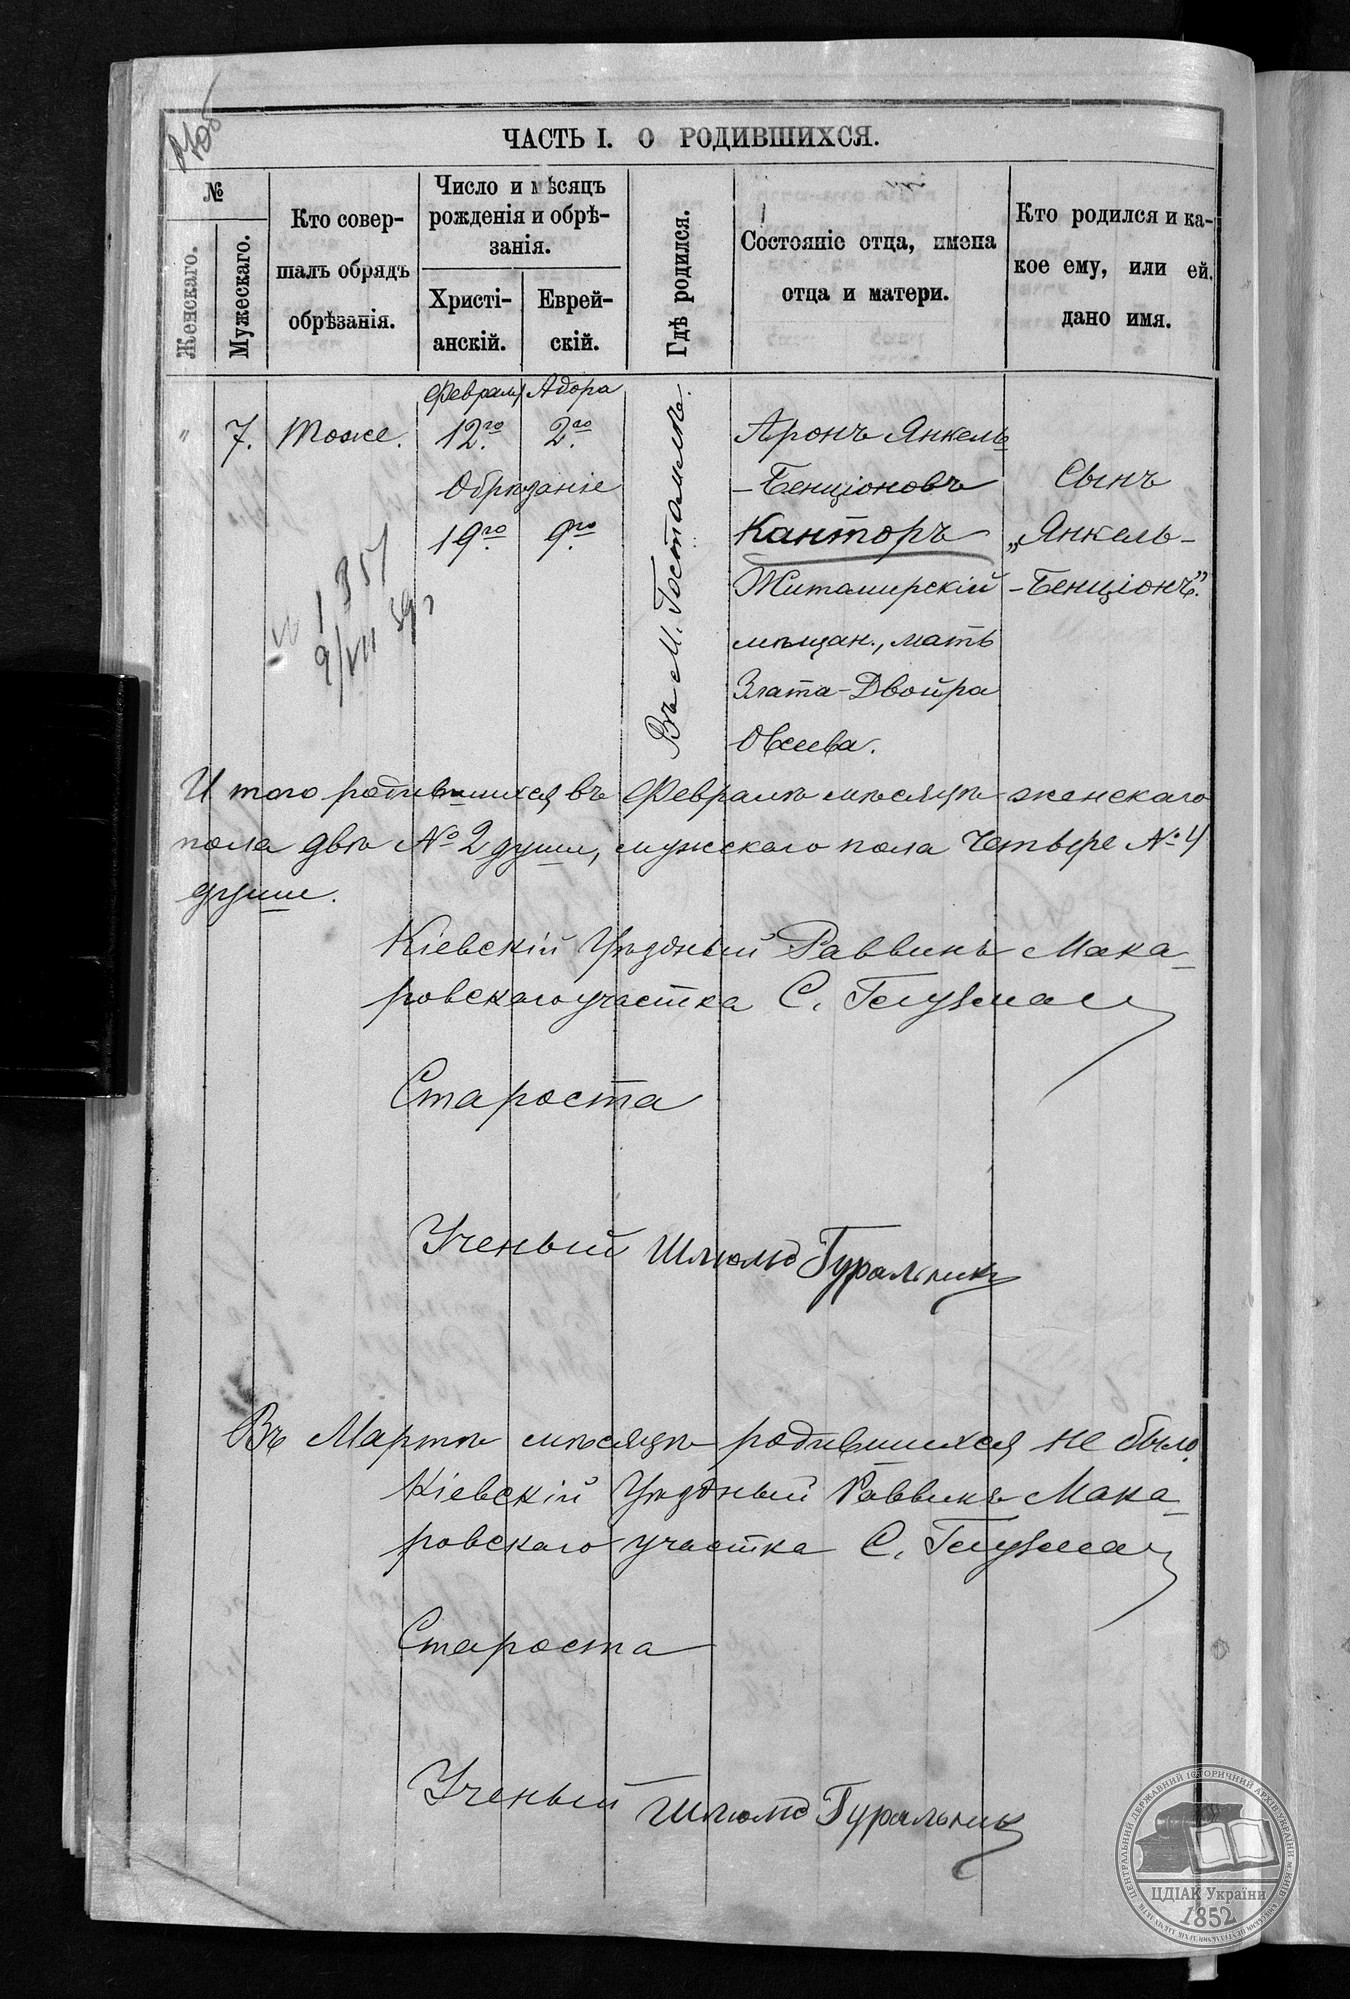 ЧАСТЬ I. О РОДИВШИХСЯ.
№
Женскаго.
Мужескаго.
Кто совер-
шалъ обрядъ
обрѣзанія.
Число и мѣсяцъ
рожденія и обрѣ-
занія.
Христі-
анскій.
Еврей-
скій.
Гдѣ родился.
Состояніе отца, имена
отца и матери.
Кто родился и ка-
кое ему, или ей.
дано имя.
Февраля Адора
" 7. Тоже. 12.го 2.го
Обрѣзаніе
19.го 9.го
Въ м. Гостомлѣ.
Аронъ Янкель
-Бенціоновъ
Канторъ
Житомирскій
мѣщан., мать
Злата-Двойра
Овсиева.
Сынъ
„Янкель-
-Бенціонъ."
1351
9/VII 39г
И того родившихся въ Февралѣ мѣсяцѣ женскаго
пола двѣ № 2 души, мужскаго пола четвере № 4
души.
Кіевскій Уѣздный Раввинъ Мака-
ровскаго участка С. Глузман
Староста
Ученый Шлюмо Гуральник
Въ Мартѣ мѣсяцѣ родившихся не было.
Кіевскій Уѣздный Раввинъ Мака-
ровскаго участка С. Глузман
Староста
Ученый Шлюмо Гуральник
ЦЕНТРАЛЬНИЙ ДЕРЖАВНИЙ ІСТОРИЧНИЙ АРХІВ УКРАЇНИ м. КИЇВ
ЦДІАК України
1852